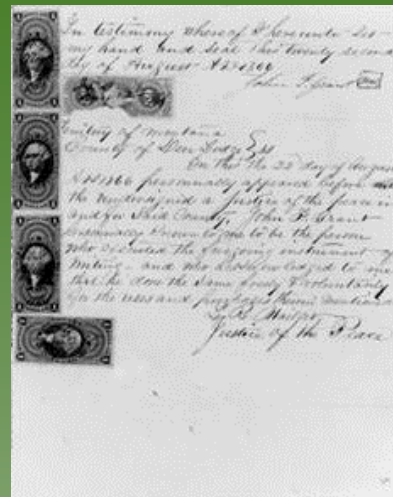 In testimony whereof I hereunto set
my hand and seal this twenty second
day of August AD 1866
John F. Grant
Teritory of Montana
County of Deer Lodge } SS
On this the 22 day of August
AD 1866 personally appeared before me
the undersigned a Justice of the peace in
and for said County, John F. Grant
personally known to me to be the person
who executed the foregoing instrument of
writing - and who acknowledged to me
that he done the same freely & voluntarily
for the uses and purposes therein mentioned
Justice of the Peace